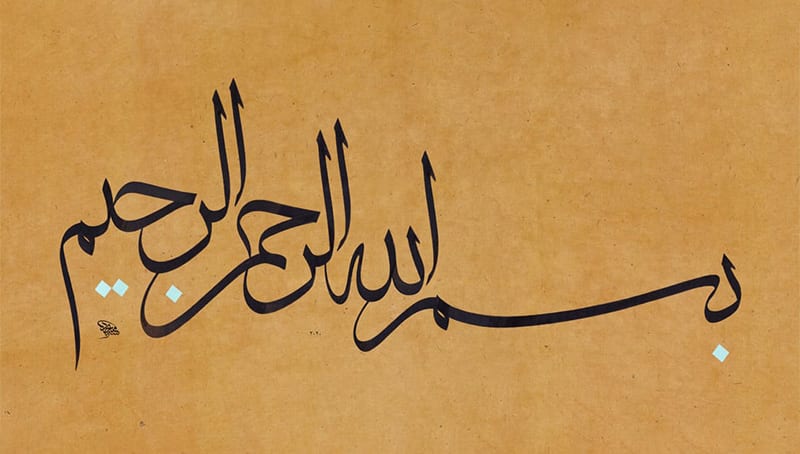 بسم الله الرحمن الرحيم
٢٠٢٠